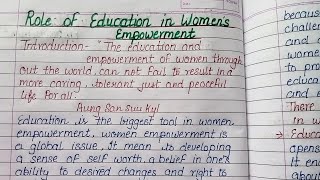 Role of Education in Women's
Empowerment
Introduction- "The Education and
empowerment of women through
out the world can not fail to result in a
more caring, tolerant just and peaceful
life for all."
Aung San suu kyi
Education is the biggest tool in women
empowerment, women empowerment is
a global issue, It mean to developing
a sense of self worth, a belief in one's
ability to desired changes and right to
becaus
challe
and
women
to pro
educa
and e
There
in w
Educa
opens
It en
about